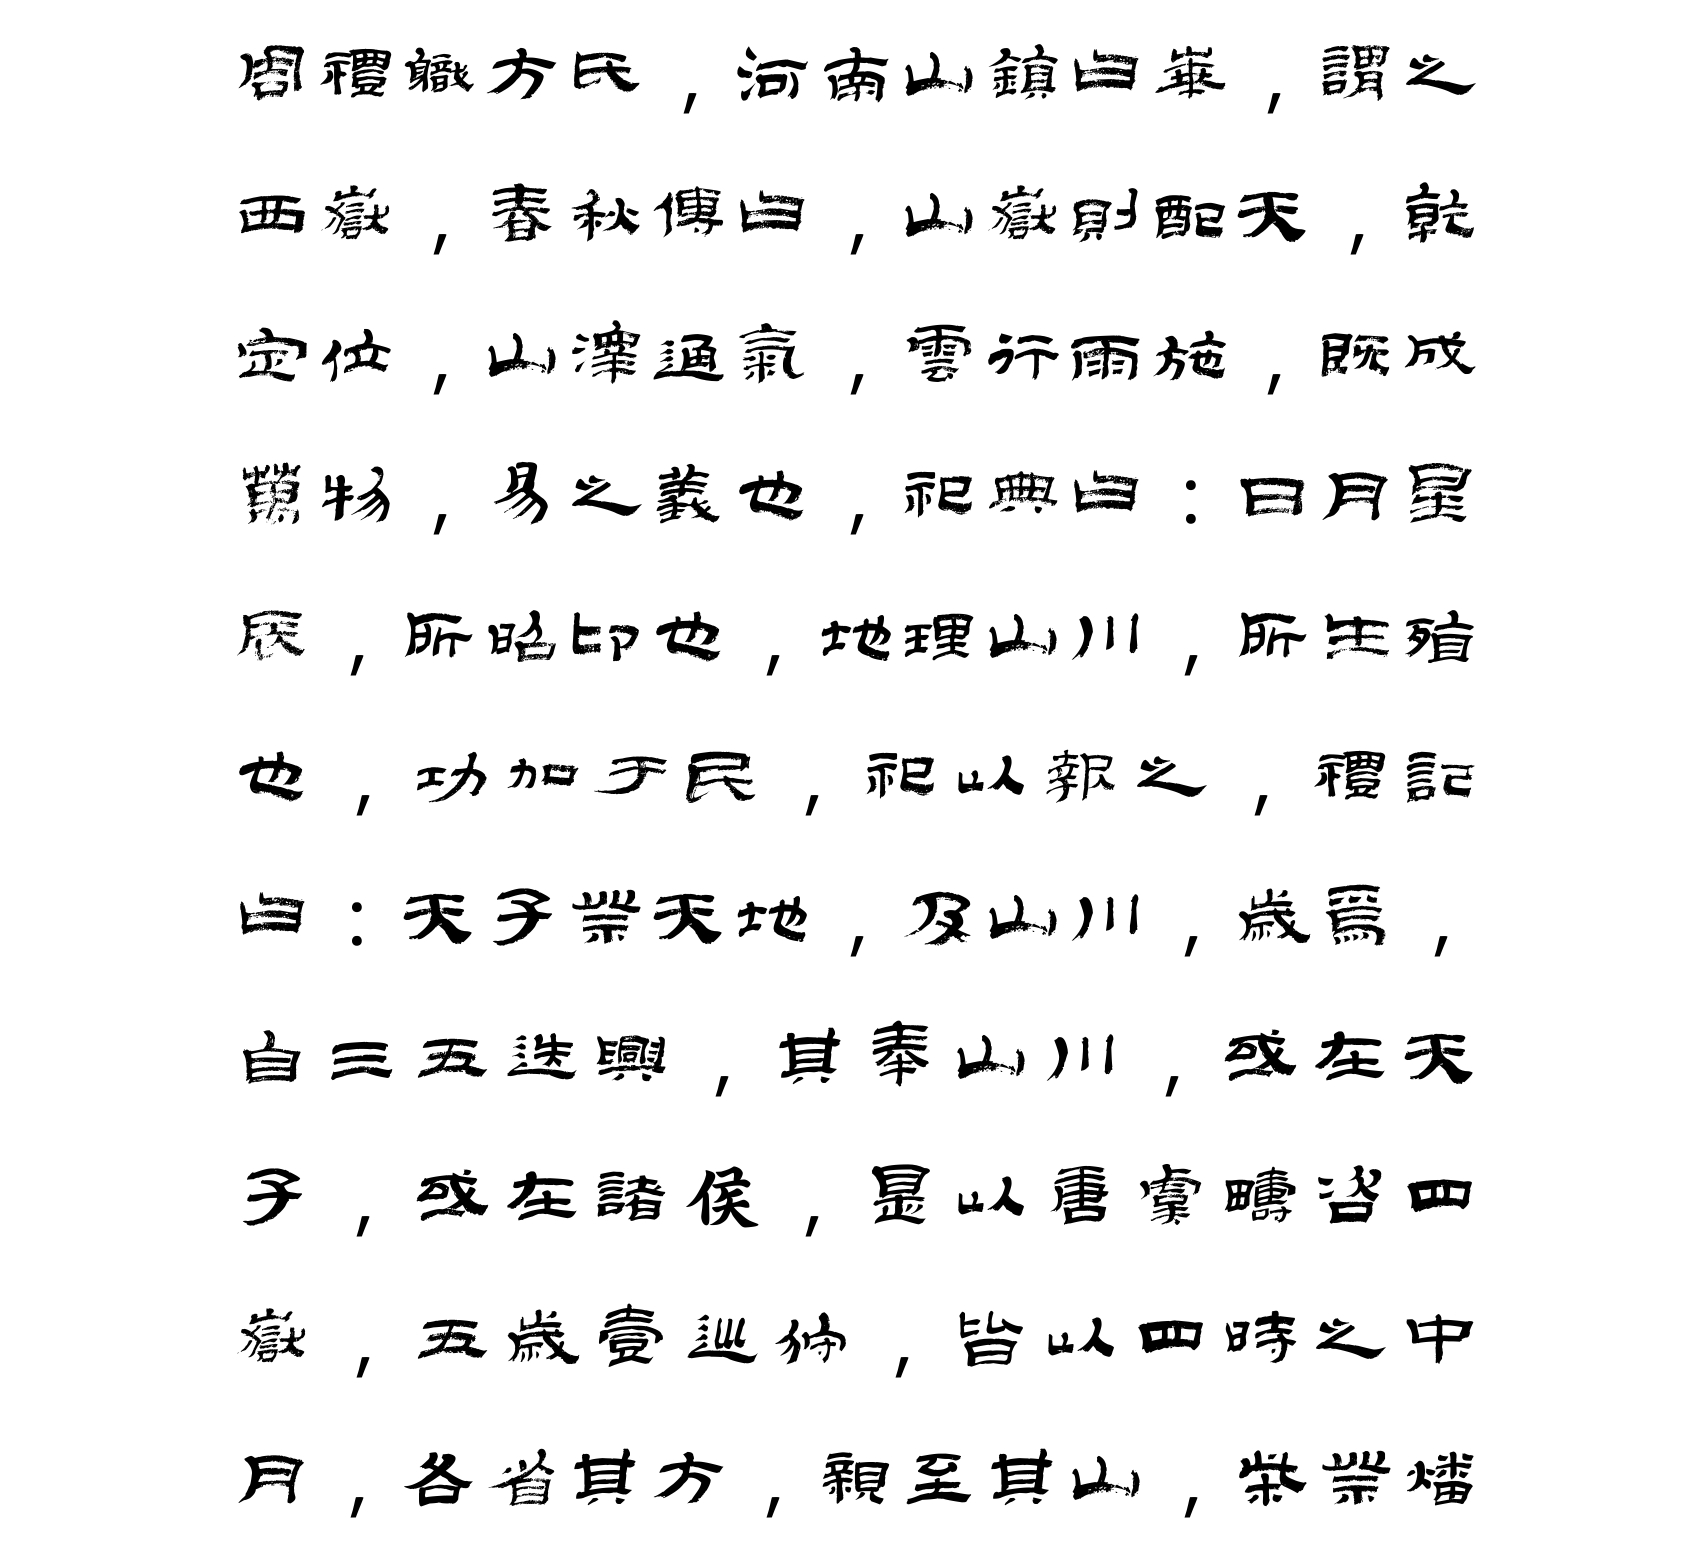 周禮職方氏,河南山鎮曰崋,謂之
西嶽,春秋傳曰,山嶽則配天,乾
定位,山澤通氣,雲行雨施,既成
萬物,易之義也,祀典曰:日月星
辰,所昭卬也,地理山川,所生殖
也,功加于民,祀以報之,禮記
曰:天子祭天地,及山川,歲焉,
自三五迭興,其奉山川,或在天
子,或在諸侯,是以唐虞疇咨四
嶽,五歲壹巡狩,皆以四時之中
月,各省其方,親至其山,柴祭燔